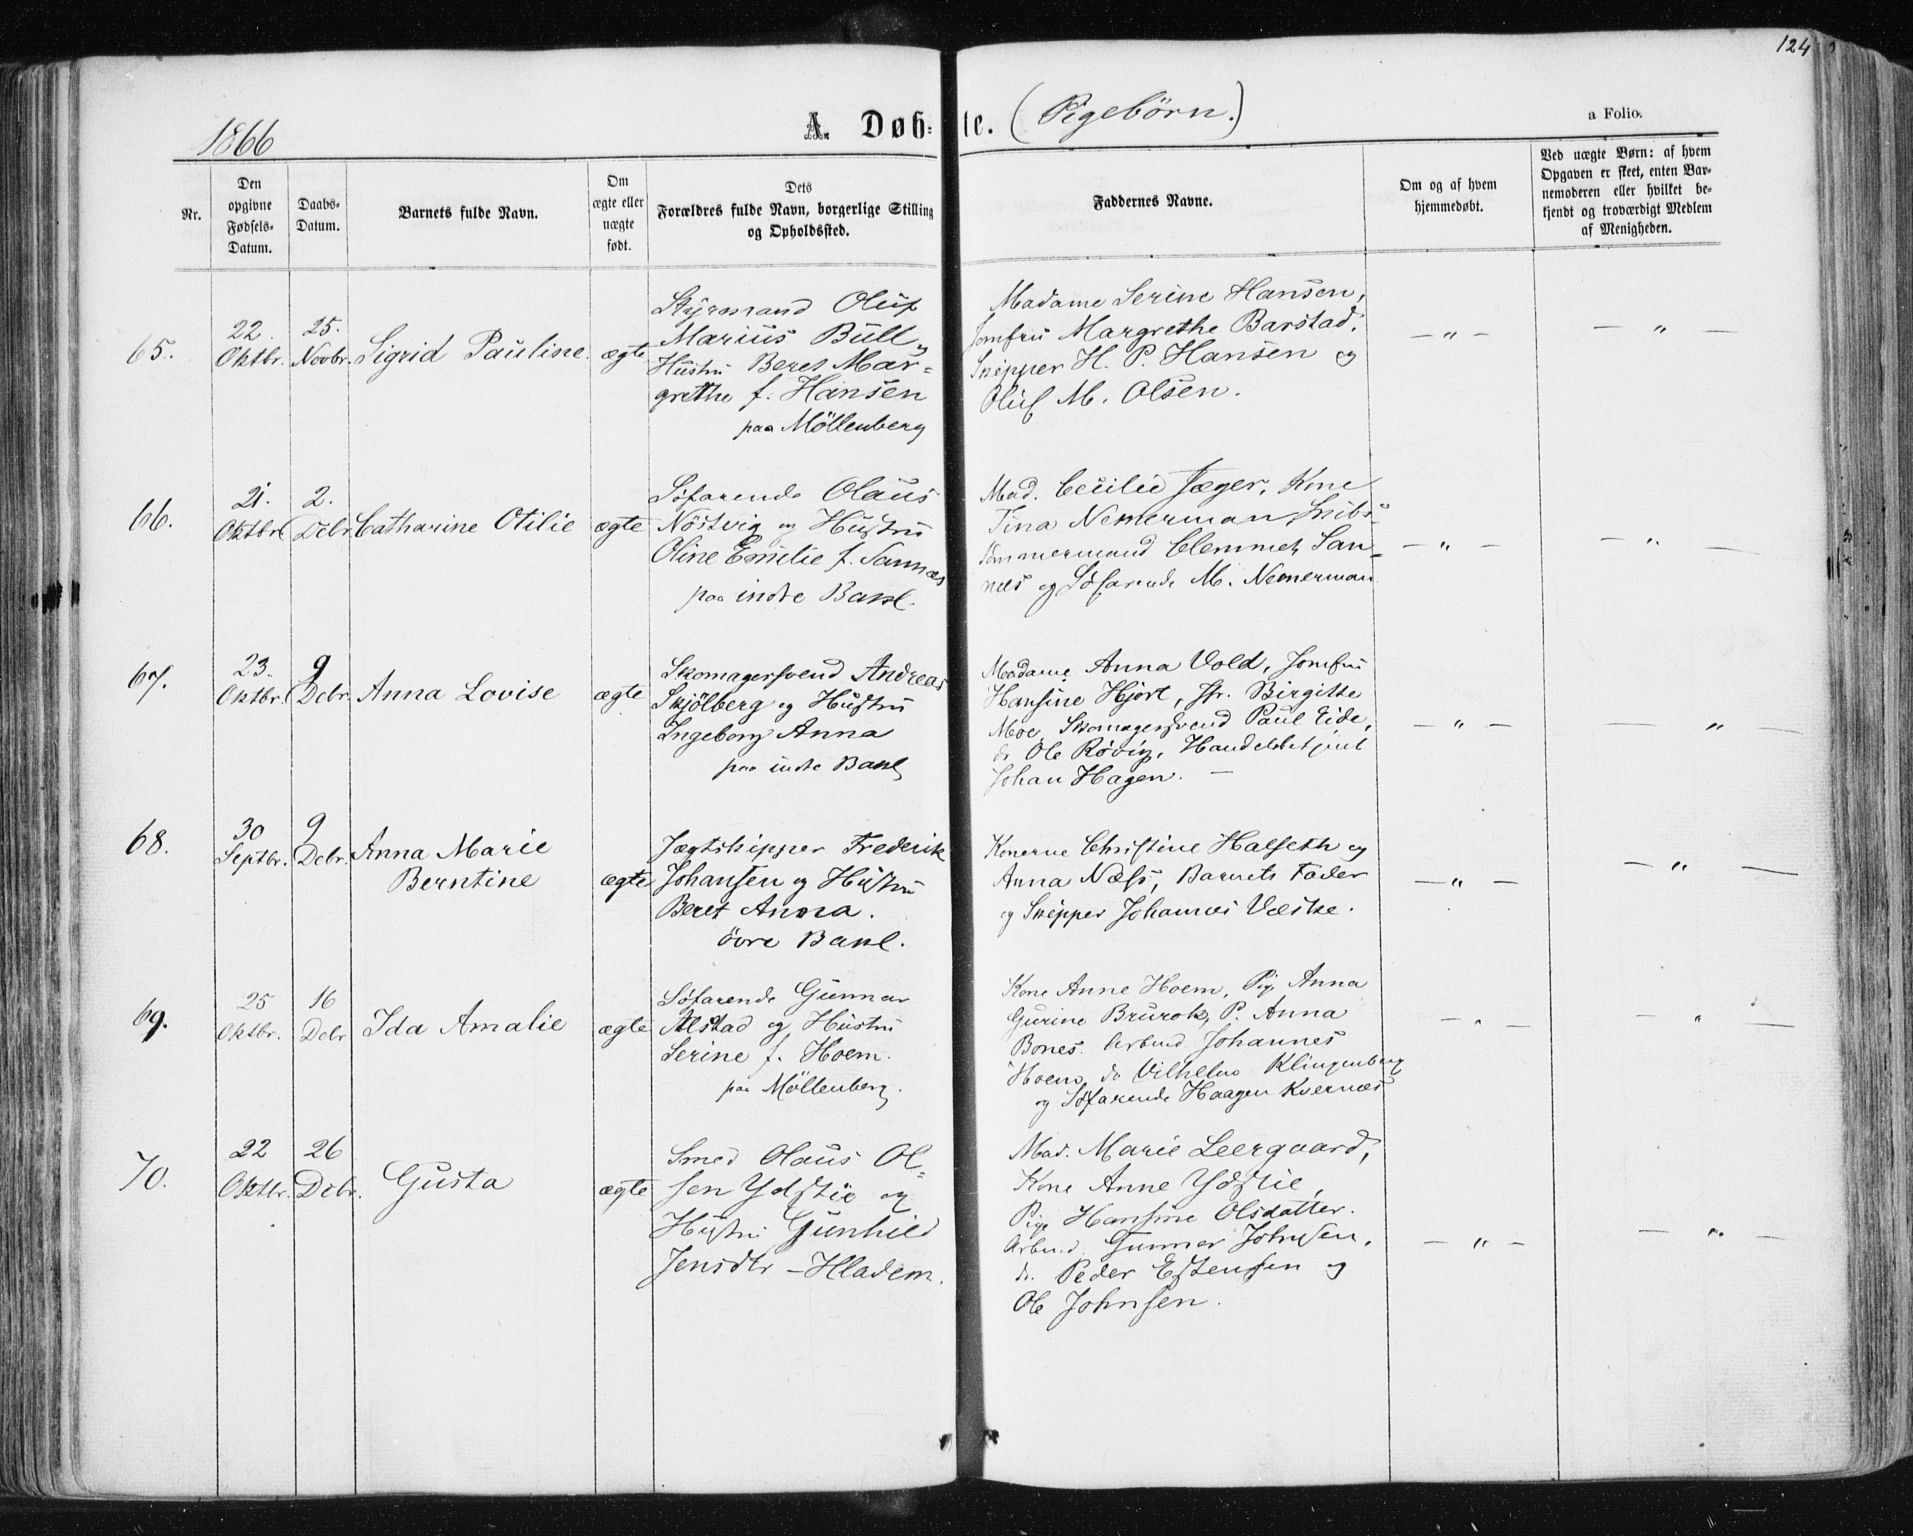 124
1866
A. Døb- te. (Pigebørn.)
a Folio.
Nr.
Den opgivne Fødsels-Datum.
Daabs-Datum.
Barnets fulde Navn.
Om ægte eller uægte født.
Dets Forældres fulde Navn, borgerlige Stilling og Opholdssted.
Faddernes Navne.
Om og af hvem hjemmedøbt.
Ved uægte Børn: af hvem Opgaven er skeet, enten Barnemoderen eller hvilket bekjendt og troværdigt Medlem af Menigheden.
65.
22. Oktbr.
25. Novbr.
Sigrid Pauline.
ægte
Styrmand Oluf
Marius Bull og
Hustru Beret Mar-
grethe f. Hansen
paa Möllenberg
Madame Serine Hansen,
Jomfru Margrethe Barstad.
Skipper H. P. Hansen og
Oluf M. Olsen.
— " —
— " —
66.
21. Oktbr.
2. Debr.
Catharine Otilie
ægte
Söfarende Olaus
Nöstvig og Hustru
Oline Emilie f. Sannæs
paa indre Bakl.
Mad. Cecilie Jæger, Kone
Tina Nemerman Skibs-
tömmermand Clemmet San-
næs og Söfarende M. Nemerman
— " —
— " —
67.
23. Oktbr.
9 Debr.
Anna Lovise
ægte
Skomagersvend Andreas
Skjölberg og Hustru
Ingeborg Anna
paa indre Bakl.
Madame Anna Vold, Jomfru
Hansine Hjort, Jfr. Birgitte
Moe, Skomagersvend Paul Eide,
do Ole Rövig, Handelsbetjent
Johan Hagen. —
— " —
— " —
68.
30 Septbr.
9 Debr.
Anna Marie
Berntine
ægte
Jægtskipper Frederik
Johansen og Hustru
Beret Anna.
övre Bakl.
Konerne Christine Halseth og
Anna Næss, Barnets Fader
og Skipper Johannes Væske.
— " —
— " —
69.
25 Oktbr.
16 Debr
Ida Amalie
ægte
Söfarende Gunnar
Alstad og Hustru
Serine f. Hoem.
paa Möllenberg.
Kone Anne Hoem, Pig. Anna
Gurine Brurok, P. Anna
Bones. Arbmd. Johannes
Hoem, do Vilhelm Klingenberg
og Söfarende Haagen Kvernæs
— " —
— " —
70.
22 Oktbr.
26 Debr.
Gusta
ægte
Smed Olaus Ol-
sen Ydstie og
Hustru Gunhild
Jensdtr — Hladem.
Mad. Marie Leergaard,
Kone Anne Ydstie,
Pige Hansine Olsdatter.
Arbmd. Gunner Johnsen,
do Peder Estensen og
Ole Johnsen.
— " —
— " —